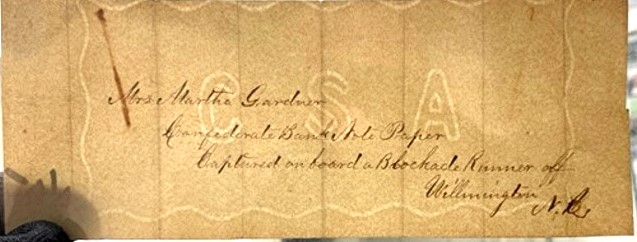 C S A
Mrs Martha Gardner
Confederate Bank Note Paper
Captured on board a Blockade Runner off
Willmington N.C.